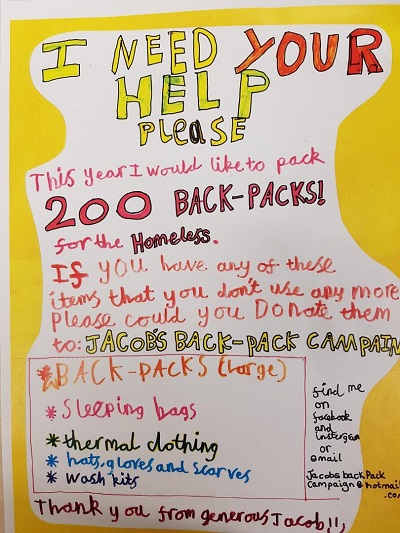 I NEED YOUR
HELP
PLEaSE
This year I would like to pack
200 BACK-PACKS!
for the Homeless.
If you have any of these
items that you don't use any more
Please could you DOnate them
to: JACOB'S BACK-PACK CAMPAIN
* BACK-PACKS (large)
* Sleeping bags
* thermal clothing
* hats, gloves and scarves
* wash kits
find me
on
facebook
and
instergram
or
email
Jacobs back Pack
campaign@hotmail
.com
Thank you from generous Jacob!!,